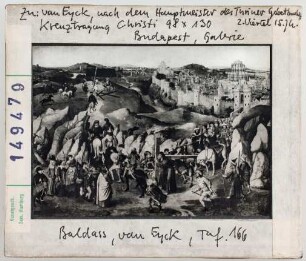 Zu: van Eyck, nach dem Hauptmeister des Turiner Gebetbuchs
Kreuztragung Christi 98 x 130 2. Viertel 15. Jh.
Budapest, Galerie
149479
Baldass, van Eyck, Taf. 166